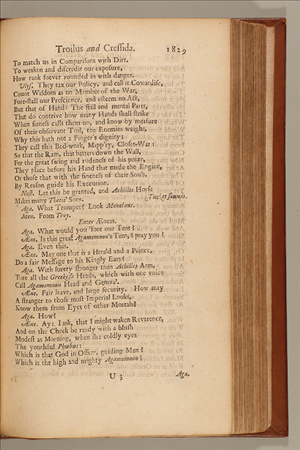 Troilus and Cressida. 1829
To match us in Comparisons with Dirt,
To weaken and discredit our exposure,
How rank soever rounded in with danger.
Ulyss. They tax our Policy, and call it Cowardise,
Count Wisdom as no Member of the War,
Fore-stall our Prescience, and esteem no Act,
But that of Hand: The still and mental Parts,
That do contrive how many Hands shall strike
When fitness calls them on, and know by measure
Of their observant Toil, the Enemies weight,
Why this hath not a Finger's dignity;
They call this Bed-work, Mapp'ry, Closet-War:
So that the Ram, that batters down the Wall,
For the great swing and rudeness of his poize,
They place before his Hand that made the Engine,
Or those that with the fineness of their Souls,
By Reason guide his Execution.
Nest. Let this be granted, and Achilles Horse
Makes many Thetis' Sons. Tucket sounds.
Aga. What Trumpet? Look Menelaus.
Men. From Troy.
Enter Æneas.
Aga. What would you 'fore our Tent?
Æne. Is this great Agamemnon's Tent, I pray you?
Aga. Even this.
Æne. May one that is a Herald and a Prince,
Do a fair Message to his Kingly Ears?
Aga. With surety stronger than Achilles Arm,
'Fore all the Greekish Heads, which with one voice
Call Agamemnon Head and General.
Æne. Fair leave, and large security. How may
A stranger to those most Imperial Looks,
Know them from Eyes of other Mortals?
Aga. How?
Æne. Ay: I ask, that I might waken Reverence,
And on the Cheek be ready with a blush
Modest as Morning, when she coldly eyes
The youthful Phœbus:
Which is that God in Office, guiding Men?
Which is the high and mighty Agamemnon?
U 3 Aga.